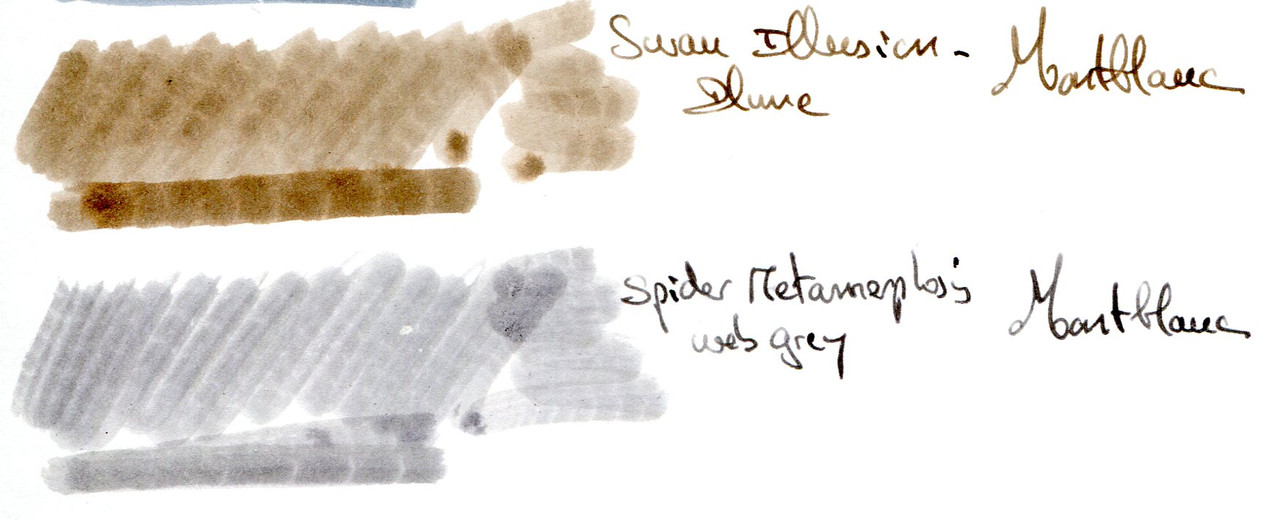 Swan Illusion - Montblanc
Plume
Spider Metamorphosis Montblanc
web grey